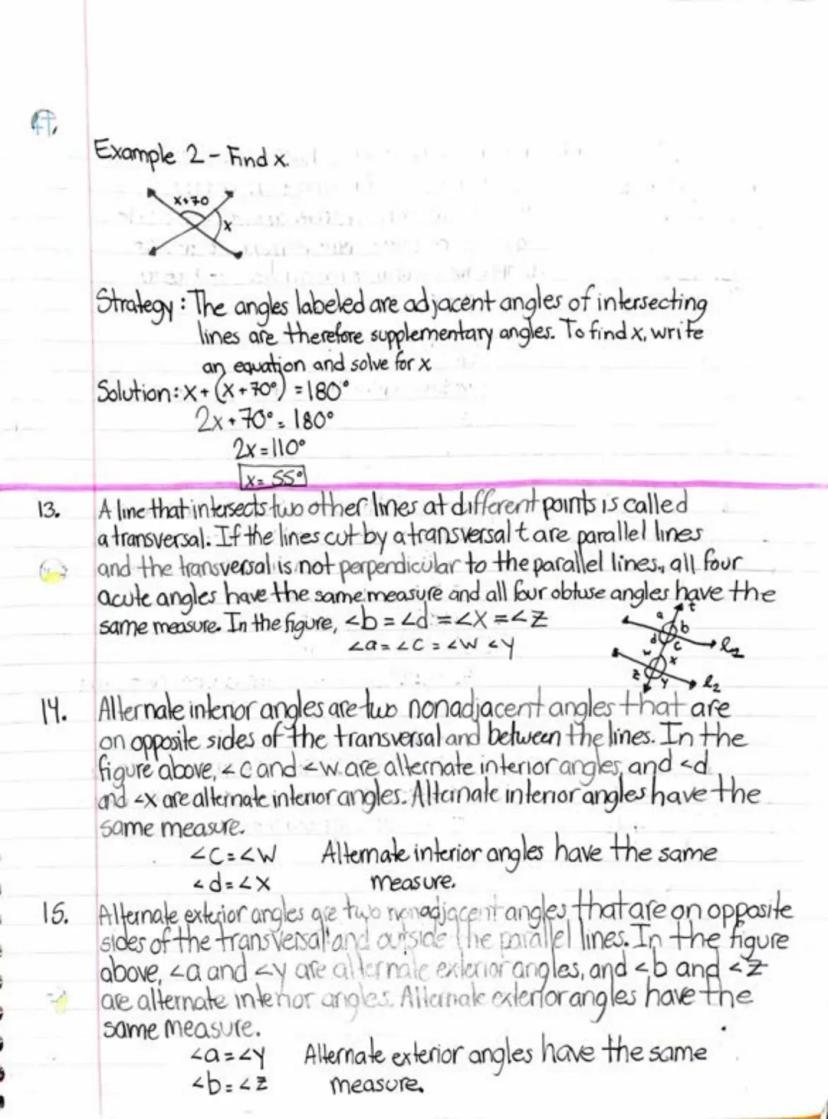 Example 2 - Find x.
x+70
x
Strategy: The angles labeled are adjacent angles of intersecting
lines are therefore supplementary angles. To find x, write
an equation and solve for x
Solution: x + (x + 70°) = 180°
2x + 70° = 180°
2x = 110°
x = 55°
13. A line that intersects two other lines at different points is called
a transversal. If the lines cut by a transversal t are parallel lines
and the transversal is not perpendicular to the parallel lines, all four
acute angles have the same measure and all four obtuse angles have the
same measure. In the figure, ∠b = ∠d = ∠X = ∠Z
∠a = ∠C = ∠W ∠Y
t
a b
d c
l₂
w x
z y
l₂
14. Alternate interior angles are two nonadjacent angles that are
on opposite sides of the transversal and between the lines. In the
figure above, ∠c and ∠w are alternate interior angles, and ∠d
and ∠X are alternate interior angles. Alternate interior angles have the
same measure.
∠C = ∠W Alternate interior angles have the same
∠d = ∠X measure.
15. Alternate exterior angles are two nonadjacent angles that are on opposite
sides of the transversal and outside the parallel lines. In the figure
above, ∠a and ∠y are alternate exterior angles, and ∠b and ∠Z
are alternate interior angles. Alternate exterior angles have the
same measure.
∠a = ∠Y Alternate exterior angles have the same
∠b = ∠Z measure.